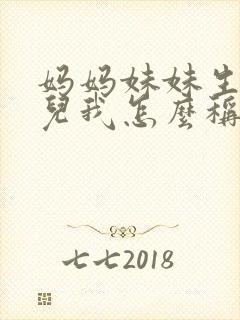 妈妈妹妹生
兒我怎麼稱
七七2018